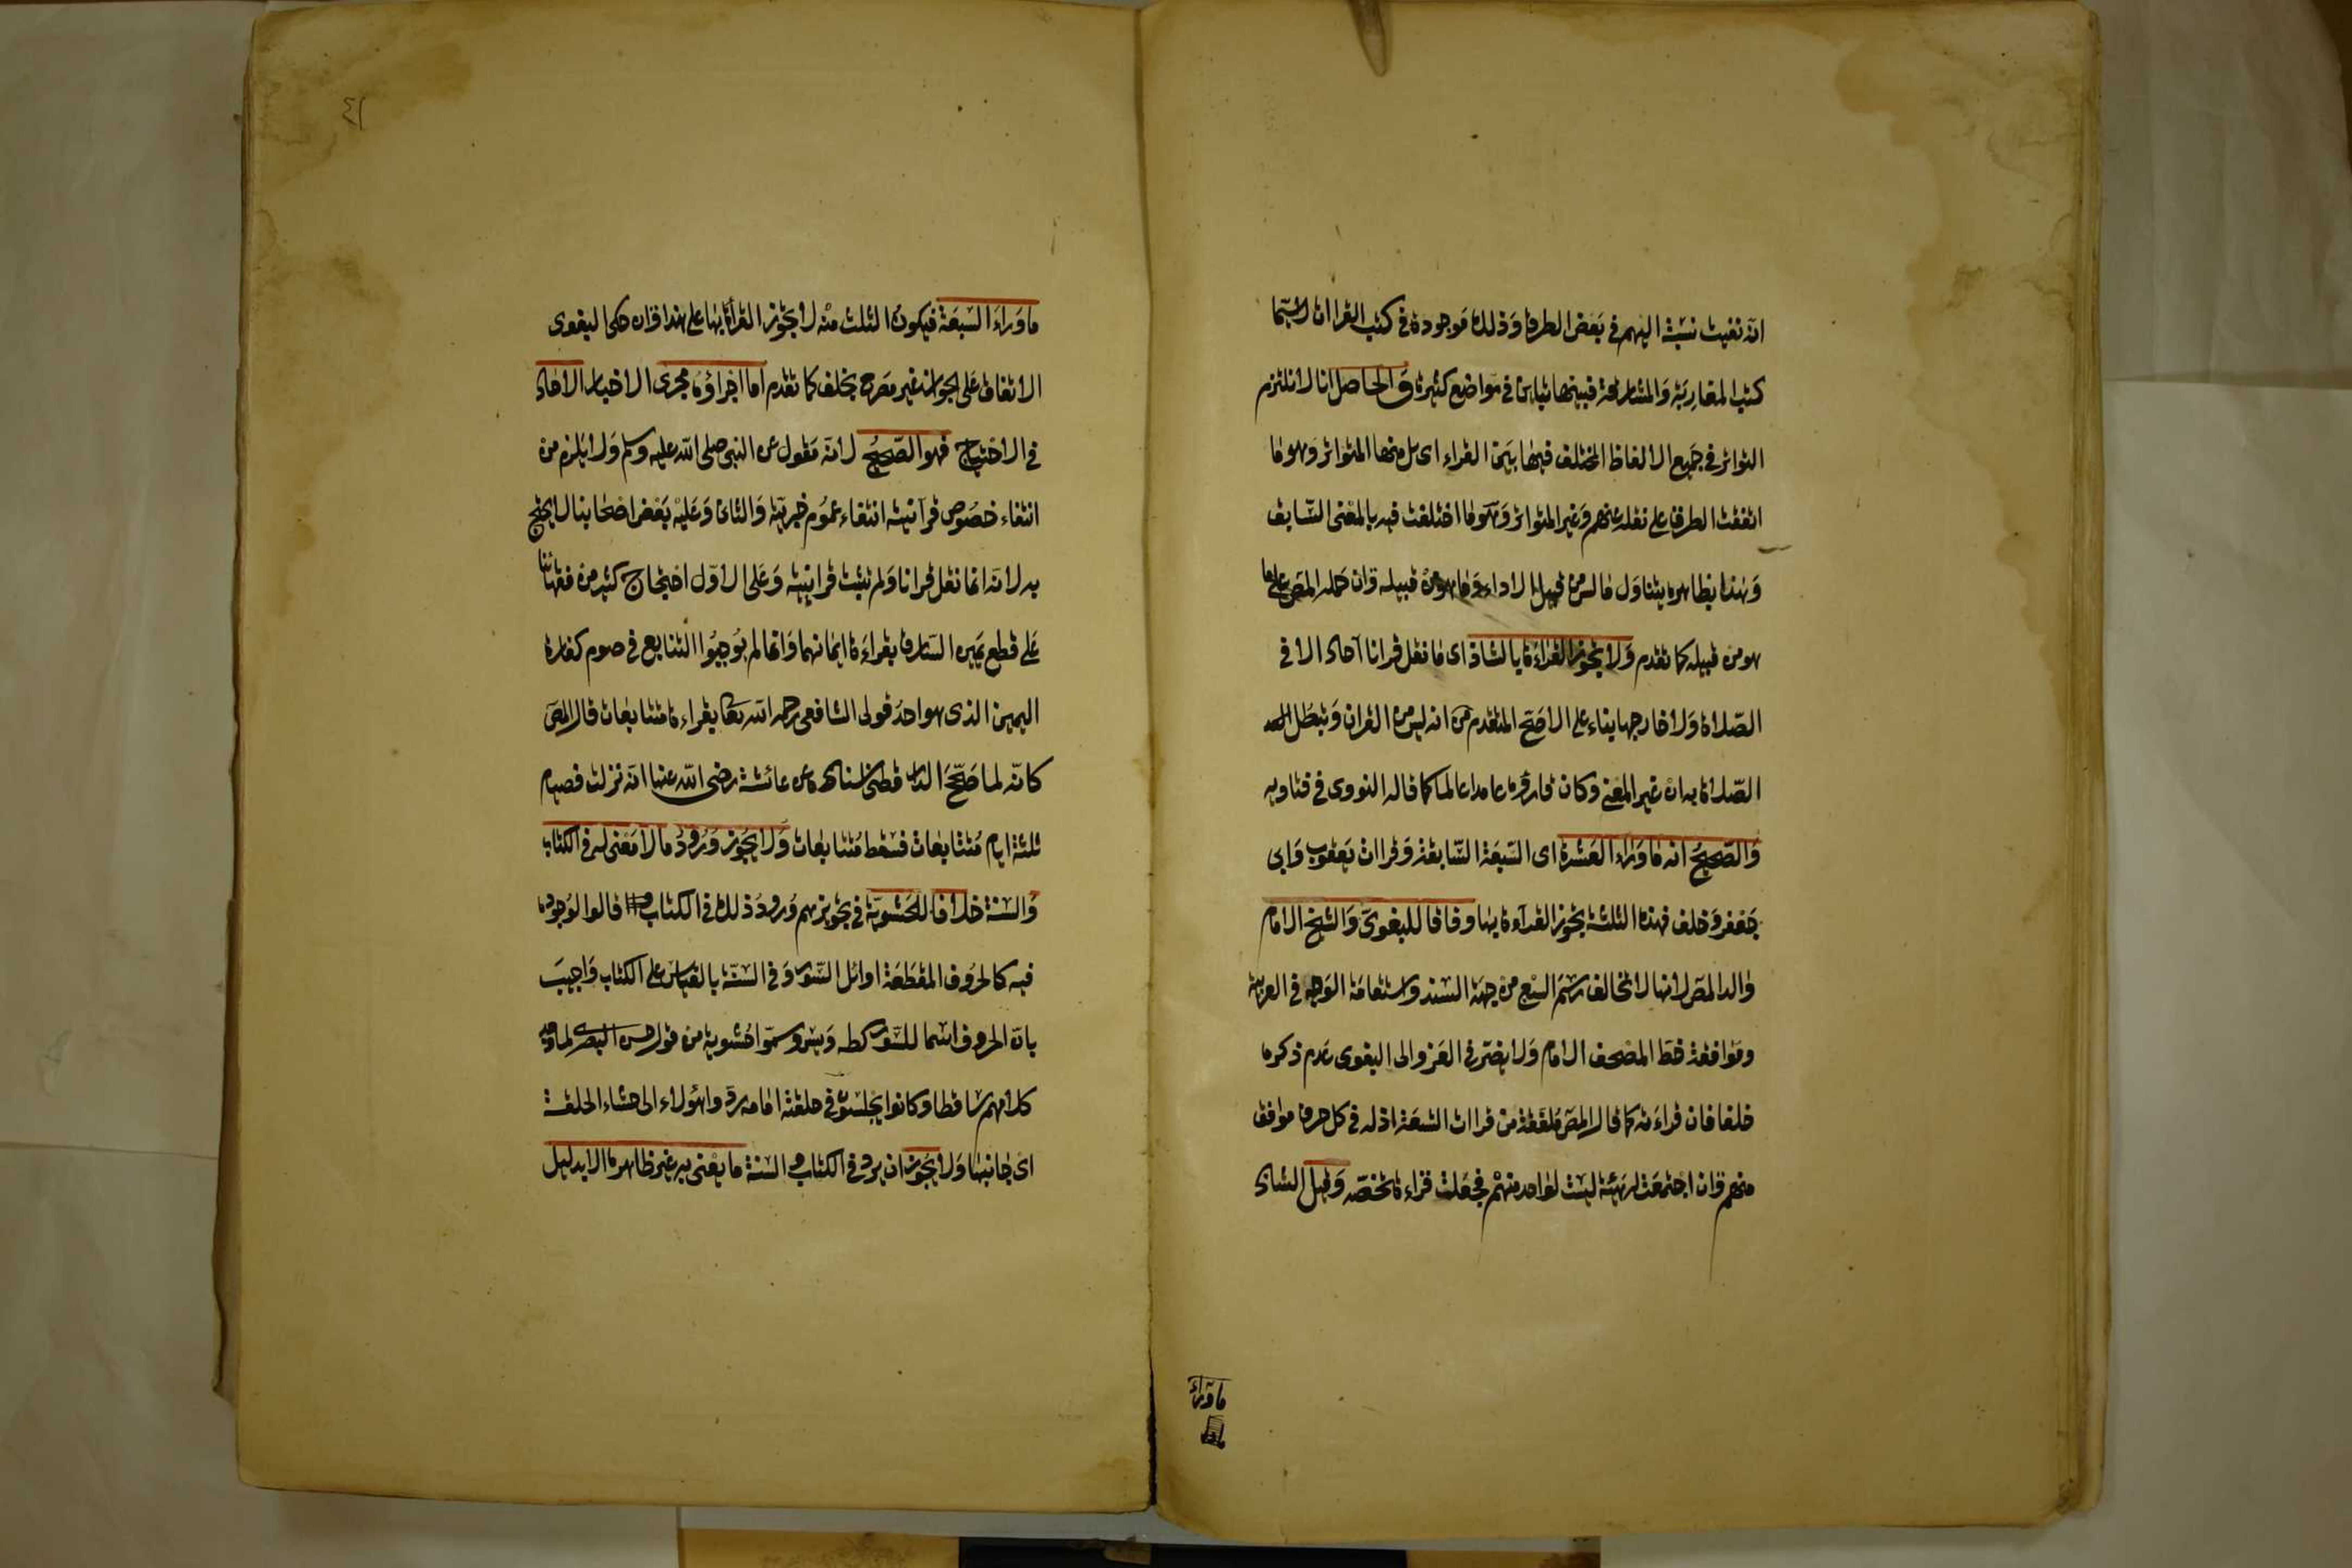 انه نفيت نسبته اليهم في بعض الطرق وذلك موجود في كتب القراات لاسيما
كتب المغاربة والمشارقة فبينهما تباين في مواضع كثيرة والحاصل انا لا نلتزم
التواتر في جميع الالفاظ المختلف فيها بين القراء اى بل منها المتواتر وهو ما
اتفقت الطرق على نقله عنهم وغير المتواتر وهو ما اختلفت فيه بالمعنى السابق
وهذا بظاهره يتناول ما ليس من قبيل الاداء وما هو من قبيله وان حمله المص على ما
هو من قبيله كما تقدم ولا يجوز القراءة بالشاذ اى ما نقل قرانا آحادا لا في
الصلاة ولا خارجها بناء على الاصح المتقدم من انه ليس من القران وتبطل
الصلاة به ان غير المعنى وكان قارؤه عامدا عالما كما قاله النووى في فتاويه
والصحيح انه ما وراء العشرة اى السبعة السابقة وقراات يعقوب وابي
جعفر وخلف فهذه الثلثة يجوز القراءة بها وفاقا للبغوى والشيخ الامام
والد المص لانها لا تخالف رسم السبع من جهة السند واستقامة الوجه في العربية
وموافقة خط المصحف الامام ولا يضر في العزو الى البغوى عدم ذكره
خلفا فان قراءته كما قال المص ملفقة من قراات السبعة اذ له في كل حرف موافق
منهم وان اجتمعت له هيئة ليست لواحد منهم فجعلت قراءة تخصه وقيل الشاذ
ماوراء
ما وراء السبعة فيكون الثلث منه لا يجوز القراة بها على هذا وان حكى البغوى
الاتفاق على الجواز غير مصرح بخلف كما تقدم اما اجراؤه مجرى الاخبار الاحاد
في الاحتجاج فهو الصحيح لانه منقول عن النبي صلى الله عليه وسلم ولا يلزم من
انتفاء خصوص قرآنيته انتفاء عموم خبريته والثانى وعليه بعض اصحابنا لا يحتج
به لانه انما نقل قرانا ولم تثبت قرانيته وعلى الاول احتجاج كثير من فقهائنا
على قطع يمين السارق بقراءة ايمانهما وانما لم يوجبوا التتابع في صوم كفارة
اليمين الذى هو احد قولى الشافعى رحمه الله بقراءة متتابعات قال المص
كانه لما صحح الدارقطنى اسناده عن عائشة رضى الله عنها انه نزلت فصيام
ثلثة ايام متتابعات فسقط متتابعات ولا يجوز ورود ما لا معنى له في الكتاب
والسنة خلافا للحشوية في تجويزهم ورود ذلك في الكتاب قالوا لوجوده
فيه كالحروف المقطعة اوائل السور وفي السنة بالقياس على الكتاب واجيب
بان الحروف اسما للسور كطه ويس وسموا حشوية من قول حسن البصرى لما وجد
كلامهم ساقطا وكانوا يجلسون في حلقته امامه ردوا هؤلاء الى حشاء الحلقة
اى جانبها ولا يجوز ان يرد في الكتاب والسنة ما يعنى به غير ظاهره الا بدليل